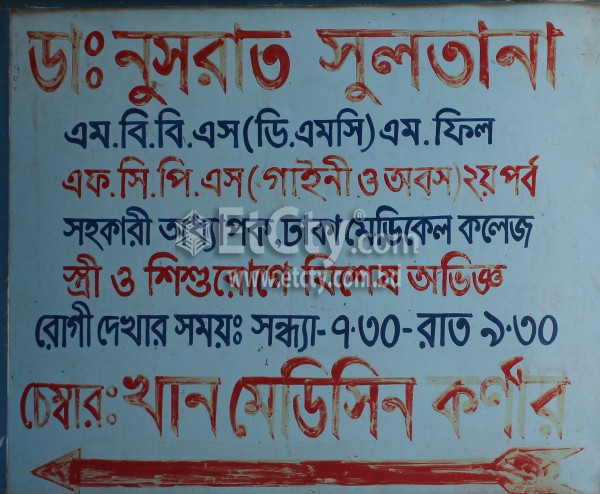 ডাঃ নুসরাত সুলতানা
এম.বি.বি.এস(ডি.এমসি)এম.ফিল
এফ.সি.পি.এস(গাইনী.ও অবস)২য় পর্ব
সহকারী অধ্যাপক ঢাকা মেডিকেল কলেজ
স্ত্রী ও শিশুরোগে বিশেষ অভিজ্ঞ
রোগী দেখার সময়ঃ সন্ধ্যা-৭.৩০-রাত ৯.৩০
চেম্বার: খান মেডিসিন কর্ণার
EtCty.com
www.etcty.com.bd